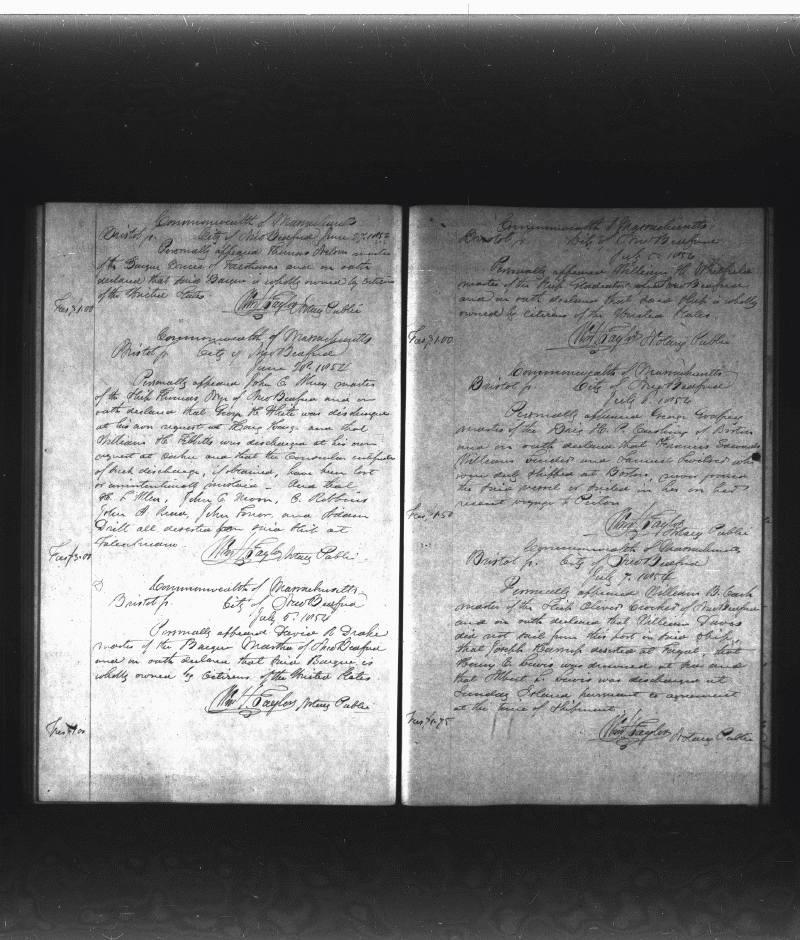 Commonwealth of Massachusetts
Bristol ss. City of New Bedford June 27, 1854
Personally appeared Thomas master
of the Barque of and on oath
declared that said Barque is wholly owned by citizens
of the United States
Fees, $1.00
Wm H. Taylor Notary Public
Commonwealth of Massachusetts
Bristol ss. City of New Bedford
June 30, 1854
Personally appeared John C. master
of the Ship of New Bedford and on
oath declared that George H. White was discharged
at his own request at Hong Kong and that
William H. was discharged at his own
request at and that the Consular certificates
of such discharge, if obtained, have been lost
or unintentionally mislaid. And that
John C. Moon, C. Robbins
John A. Read, John and Adam
Drill all deserted from said Ship at
Talcahuano
Fees $3.00
Wm H. Taylor Notary Public
Commonwealth of Massachusetts
Bristol ss. City of New Bedford
July 5, 1854
Personally appeared David N. Drake
master of the Barque Martha of New Bedford
and on oath declared that said Barque is
wholly owned by Citizens of the United States
Wm H. Taylor Notary Public
Fees $1.00
Commonwealth of Massachusetts
Bristol ss. City of New Bedford
July 5, 1854
Personally appeared William H. Whitfield
master of the Ship Gladiator of New Bedford
and on oath declared that said Ship is wholly
owned by citizens of the United States.
Fees, $1.00
Wm H. Taylor Notary Public
Commonwealth of Massachusetts
Bristol ss. City of New Bedford
July 6, 1854
Personally appeared George Godfrey
master of the Brig H. P. Cushing of Boston
and on oath declared that Francis Edwards
William and Samuel who
were duly shipped at Boston, never joined
the said vessel or sailed in her on her
recent voyage to
Fees, $1.50
Wm H. Taylor
Notary Public
Commonwealth of Massachusetts
Bristol ss. City of New Bedford
July 7, 1854
Personally appeared William B. Cash
master of the Ship Oliver Crocker of New Bedford
and on oath declared that William Davis
did not sail from this port in said Ship,
that Joseph deserted at Fayal, that
Henry C. Lewis was drowned at sea and
that Albert L. Lewis was discharged at
Sunday Island pursuant to agreement
at the time of shipment.
Fees, $1.75
Wm H. Taylor Notary Public